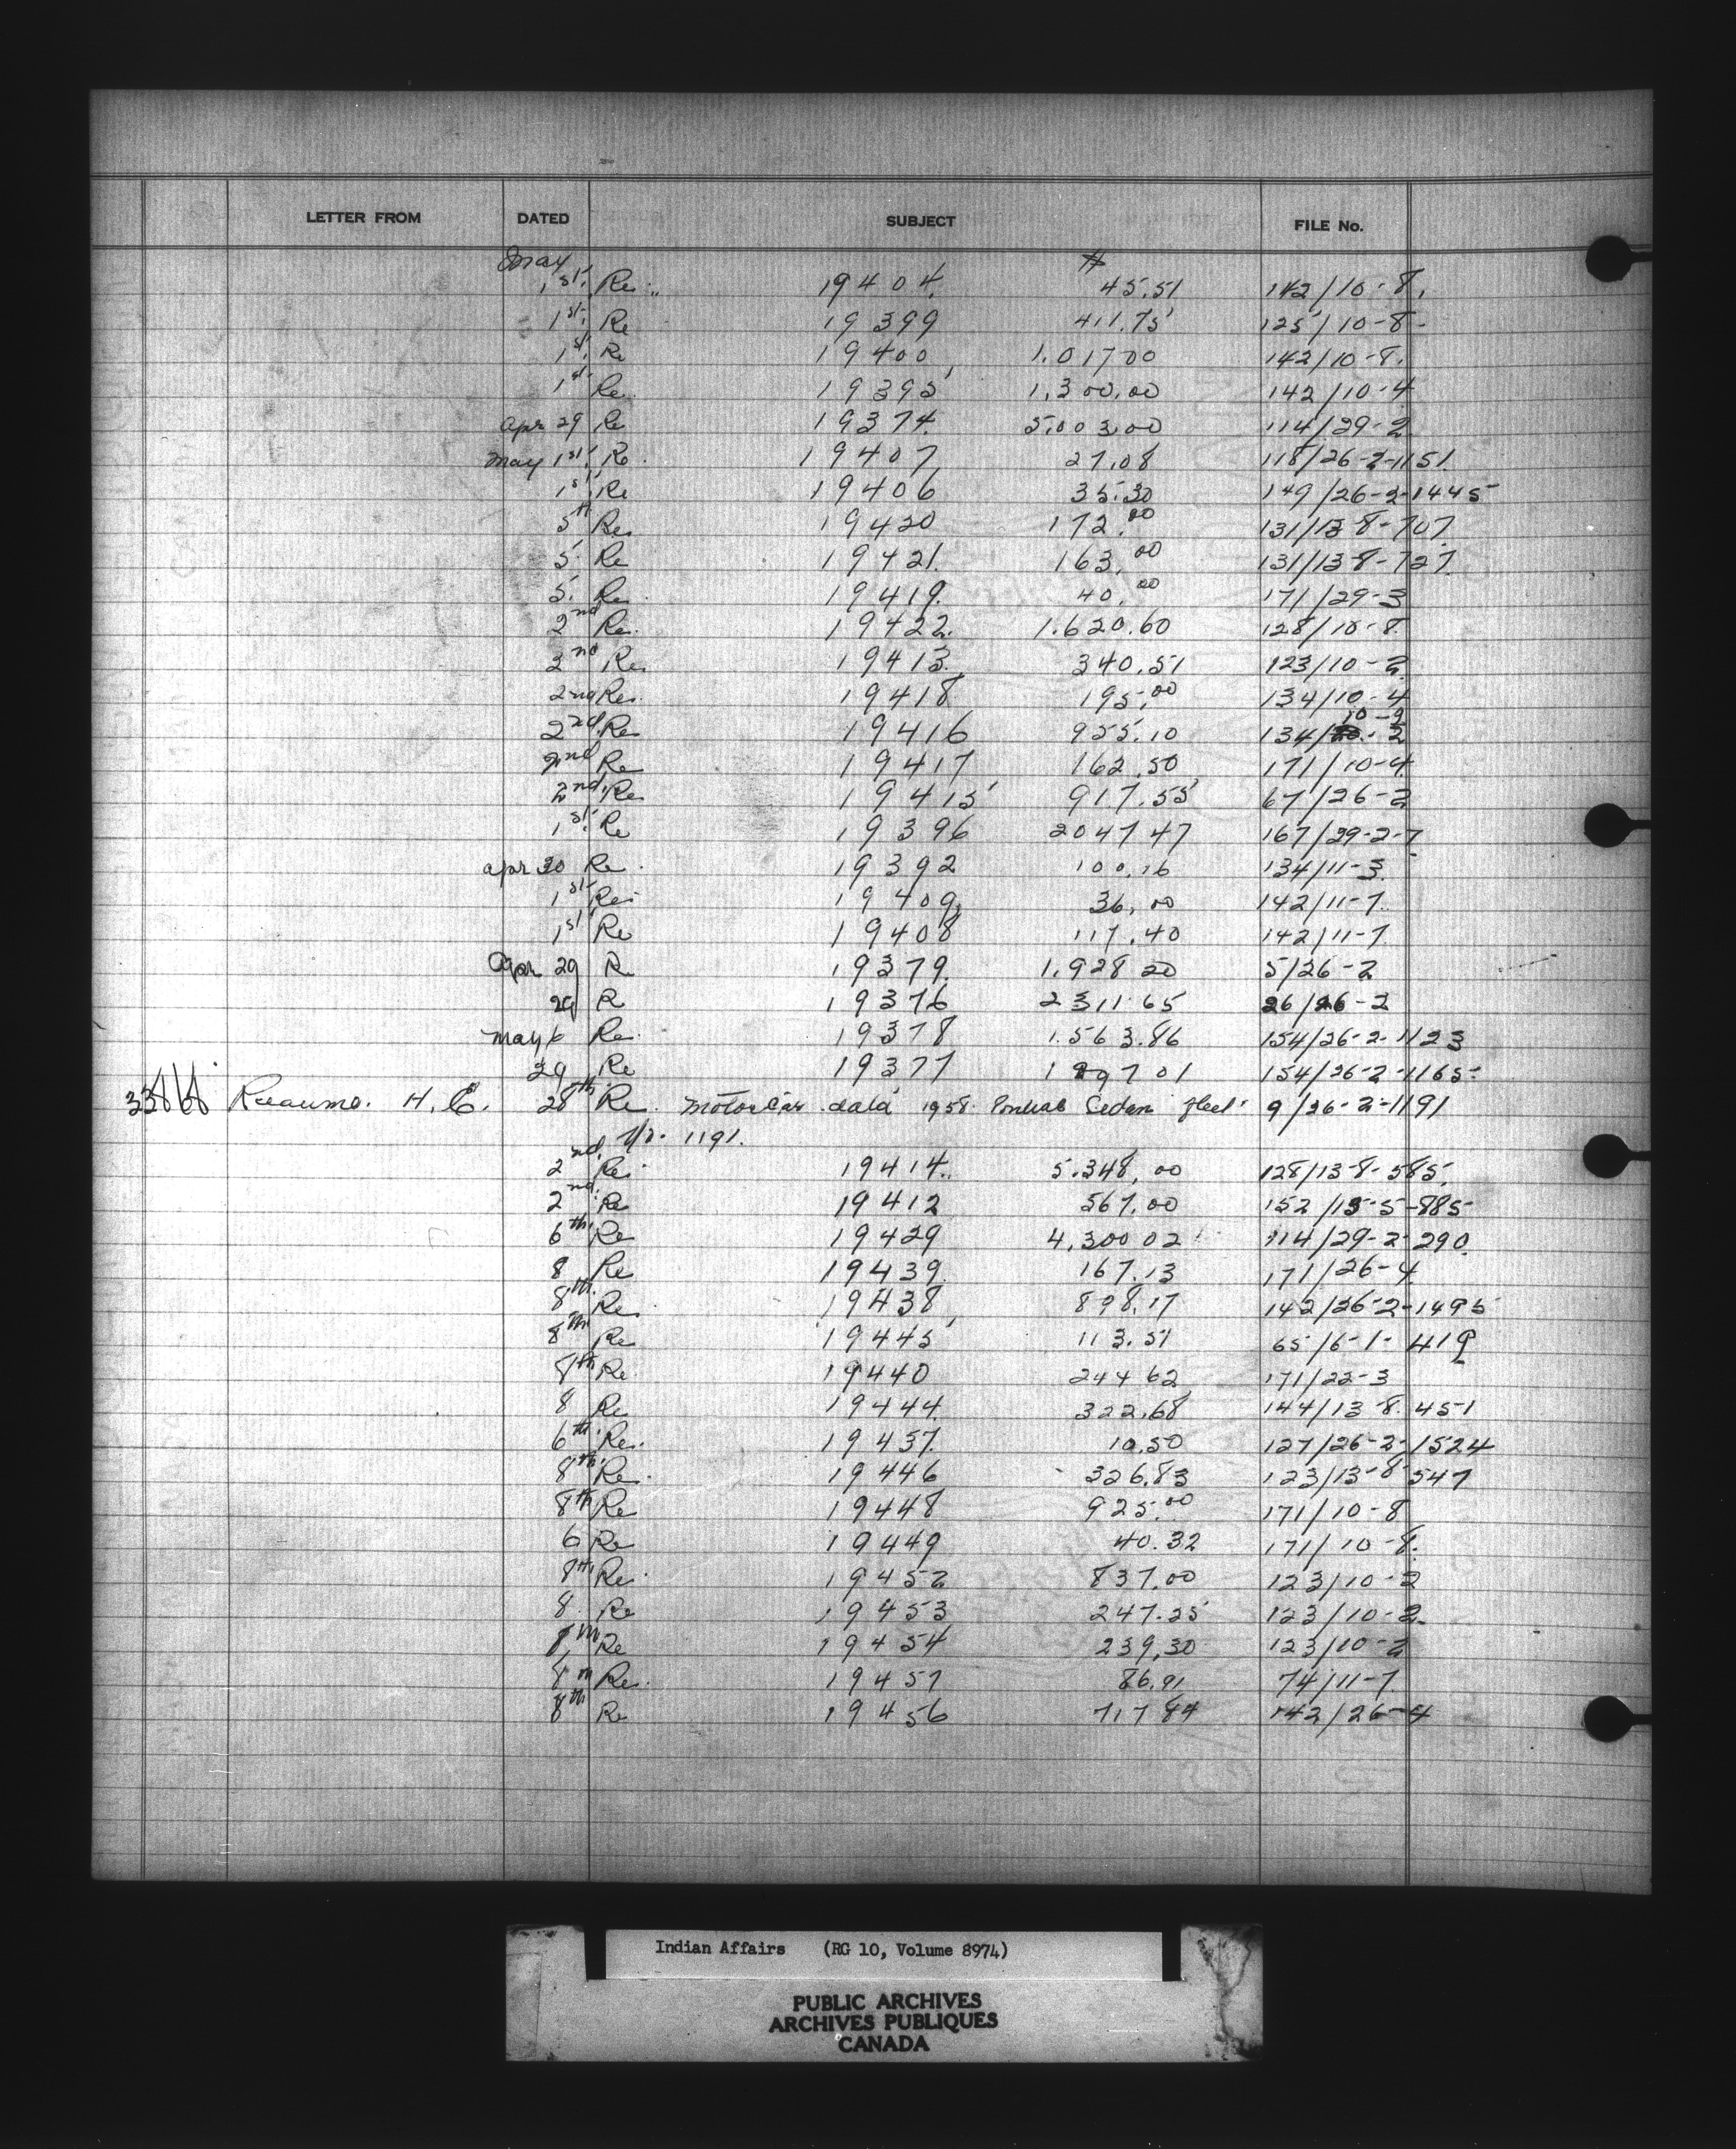 LETTER FROM DATED SUBJECT FILE No.
May #
1st. Re. 19404. 45.51 142/10-8.
1st. Re 19399 411.75 125/10-8-
1st. Re 19400 1.01700 142/10-8.
1st. Re. 19395 1,300.00 142/10-4
Apr 29 Re 19374. 5.003.00 114/29-2
May 1st. Re. 19407 27.08 118/26-2-1151.
1st. Re 19406 35.30 149/26-2-1445
5th Re. 19420 172.00 131/13-8-707.
5. Re 19421. 163.00 131/13-8-727.
5. Re. 19419. 40.00 171/29-3
2nd Re. 19422. 1.620.60 128/10-8.
2nd Re. 19413. 340.51 123/10-2
2nd Re. 19418 195.00 134/10-4
10-2
2nd. Re 19416 955.10 134/ -2
2nd Re 19417 162.50 171/10-4
2nd. Re 19415 917.55 67/26-2
1st. Re 19396 2047 47 167/29-2-7
Apr 30 Re. 19392 100.16 134/11-3.
1st. Re. 19409. 36.00 142/11-7.
1st. Re 19408 117.40 142/11-7
Apr 29 Re 19379. 1.928 20 5/26-2
29 R 19376 2311.65 26/26-2
May 6 Re. 19378 1.563.86 154/26-2-1123
29 Re 19377 1897 01 154/26-2-1165-
Reaume. H. E. 28th Re. Motor Car data 1958. Pontiac Sedan fleet 9/26-2-1191
No. 1191.
2nd. Re. 19414. 5.348.00 128/13-8-585.
2nd. Re 19412 567.00 152/15-5-885-
6th. Re 19429 4.300 02 114/29-2-290.
8 Re 19439. 167.13 171/26-4
8th. Re. 19438 898.17 142/26-2-1495
8th Re 19445 113.51 65/6-1-419
8th Re. 19440 244 62 171/23-3
8 Re 19444. 322.68 144/13-8-451
6th. Re. 19437. 10.50 127/26-2-1524
8th. Re. 19446 326.83 123/13-8-547
8th Re 19448 925.00 171/10-8
6 Re 19449 40.32 171/10-8.
8th. Re. 19452 837.00 123/10-2
8. Re 19453 247.25 123/10-2.
8th Re 19454 239.30 123/10-2
8th Re. 19457 86.91 74/11-7
8th Re 19456 717 84 142/26-4
Indian Affairs (RG 10, Volume 8974)
PUBLIC ARCHIVES
ARCHIVES PUBLIQUES
CANADA